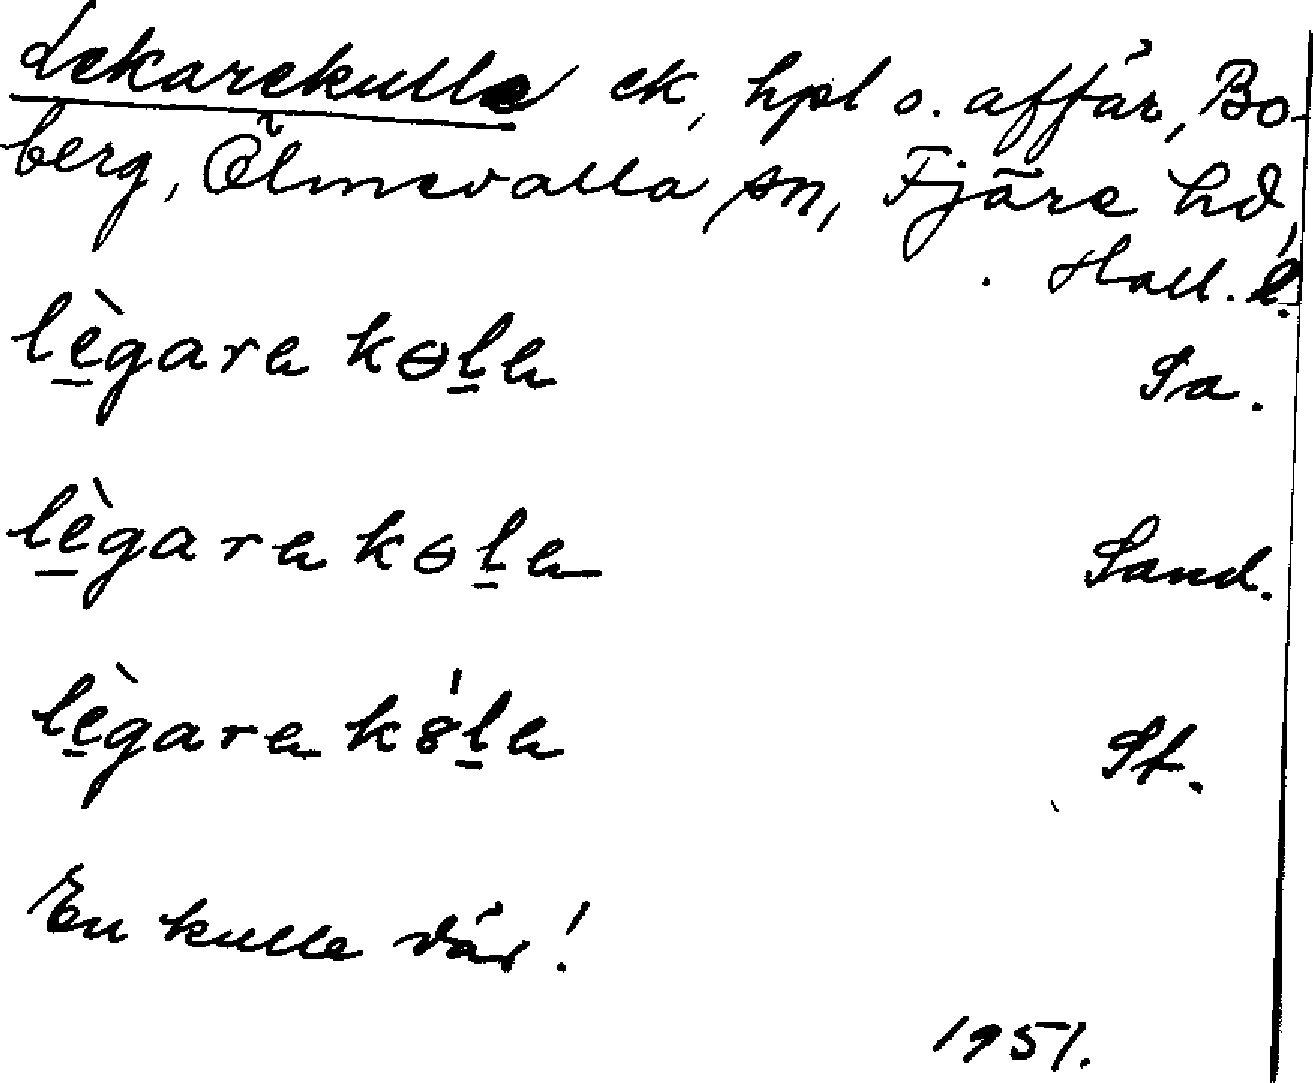 Lekarekulle ek, hpl o. affär, Bo-
berg, Ölmevalla sn, Fjäre hd,
Hall. l.
lègara kɵla Sa.
lègara kɵla Sand.
lègara kɵ́la St.
En kulle där!
1951.